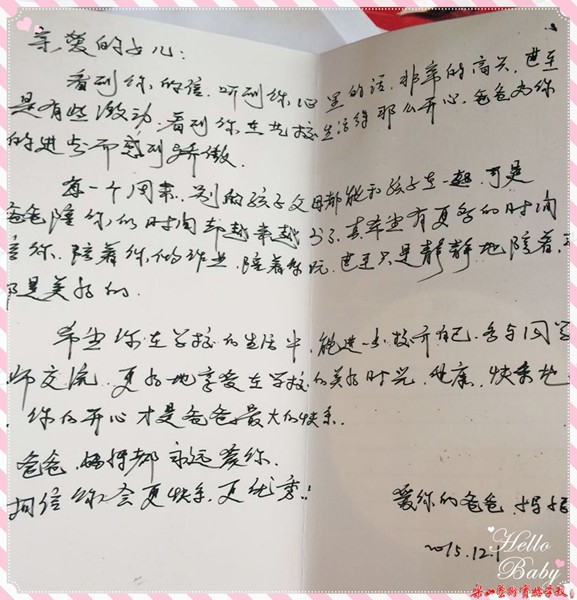 亲爱的女儿：
看到你的信，听到你心里的话，非常的高兴，甚至
是有些激动，看到你在艺校生活得那么开心，爸爸为你
的进步而感到骄傲。
每一个周末，别的孩子父母都能和孩子在一起，可是
爸爸陪你的时间却越来越少了，真希望有更多的时间
陪你，陪着你做作业，陪着你玩，甚至只是静静地陪着，
都是美好的。
希望你在学校的生活中，能进一步放开自己，多与同学
师交流，更好地享受在学校的美好时光，健康，快乐地
，你的开心才是爸爸最大的快乐。
爸爸，妈妈都永远爱你。
相信你会更快乐，更优秀！
爱你的爸爸，妈妈
2015.12.1
Hello
Baby
艺术实验学校